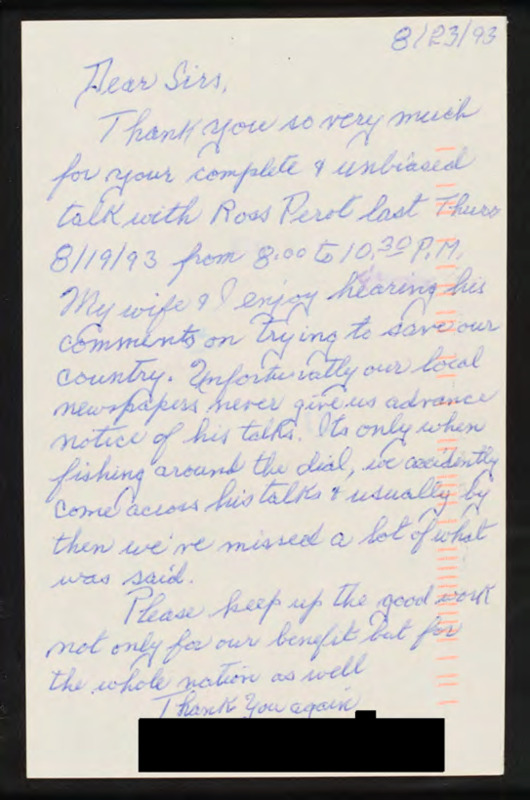 8/23/93
Dear Sirs,
Thank you so very much
for your complete & unbiased
talk with Ross Perot last Thurs
8/19/93 from 8:00 to 10:30 P.M.
My wife & I enjoy hearing his
comments on trying to save our
country. Unfortunatly our local
newspapers never give us advance
notice of his talks. Its only when
fishing around the dial, we accidently
come across his talks & usually by
then we've missed a lot of what
was said.
Please keep up the good work
not only for our benefit but for
the whole nation as well
Thank You again